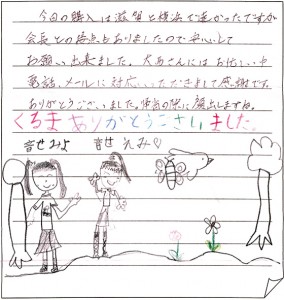 今回の購入は滋賀と横浜で遠かったですが
会長との接点もありましたので安心して
お願い出来ました。大あさんにはお忙しい中
電話、メールに対応いただきまして感謝です。
ありがとうございました。の際に顔出しますね。
くるまありがとうございました。
幸せみよ 幸せえみ♡